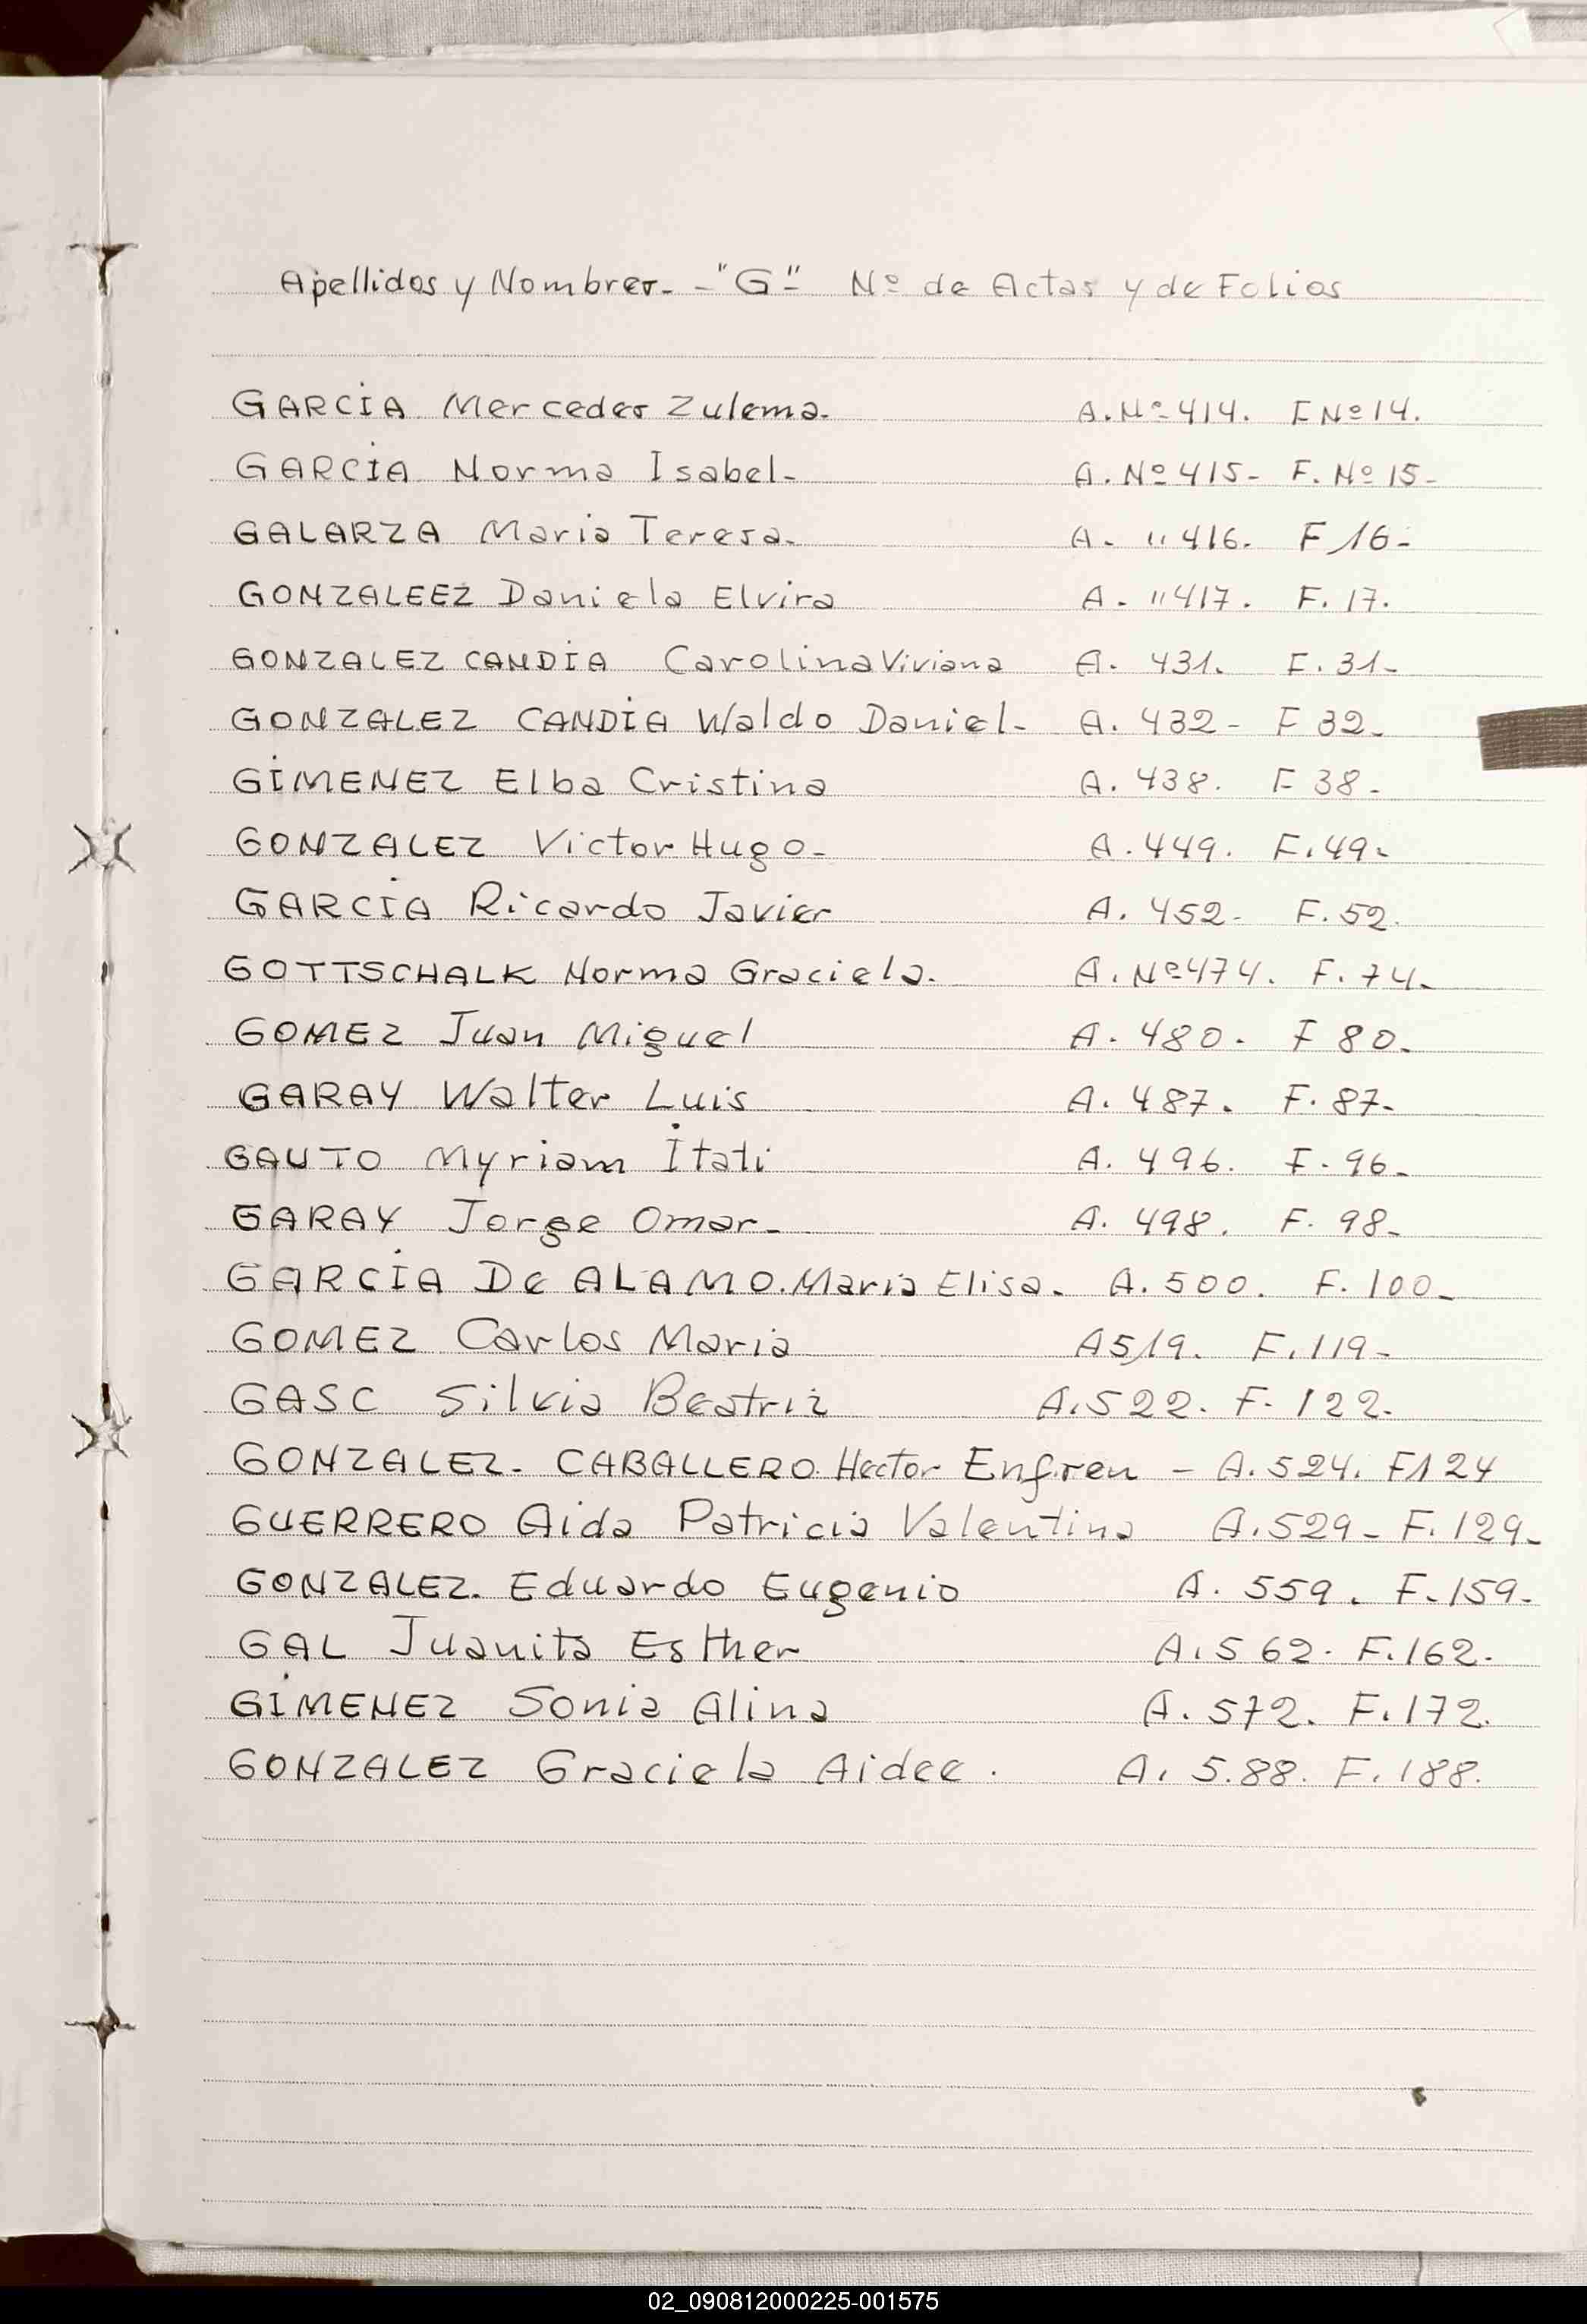 Apellidos y Nombres. - "G" - Nº de Actas y de Folios
GARCÍA Mercedes Zulema. A. Nº 414. F Nº 14.
GARCÍA Norma Isabel - A. Nº 415 - F. Nº 15 -
GALARZA Maria Teresa. A - " 416. F 16 -
GONZALEEZ Daniela Elvira A - " 417. F. 17.
GONZALEZ CANDÍA Carolina Viviana A. 431. F. 31 -
GONZALEZ CANDÍA Waldo Daniel - A. 432 - F 32 -
GIMENEZ Elba Cristina A. 438. F 38 -
GONZALEZ Victor Hugo - A. 449. F. 49 -
GARCÍA Ricardo Javier A. 452 - F. 52.
GOTTSCHALK Norma Graciela. A. Nº 474. F. 74 -
GOMEZ Juan Miguel A. 480. F 80 -
GARAY Walter Luis A. 487. F. 87 -
GAUTO Myriam Itati A. 496. F. 96 -
GARAY Jorge Omar - A. 498. F. 98 -
GARCÍA De ALAMO. Maria Elisa. A. 500. F. 100 -
GOMEZ Carlos Maria A 519. F. 119 -
GASC Silvia Beatriz A. 522. F. 122.
GONZALEZ - CABALLERO. Hector Enfren - A. 524. F 124
GUERRERO Aida Patricia Valentina A. 529 - F. 129 -
GONZALEZ. Eduardo Eugenio A. 559. F. 159 -
GAL Juanita Esther A. 562. F. 162.
GIMENEZ Sonia Alina A. 572. F. 172.
GONZALEZ Graciela Aidee. A. 5.88. F. 188.
02_090812000225-001575